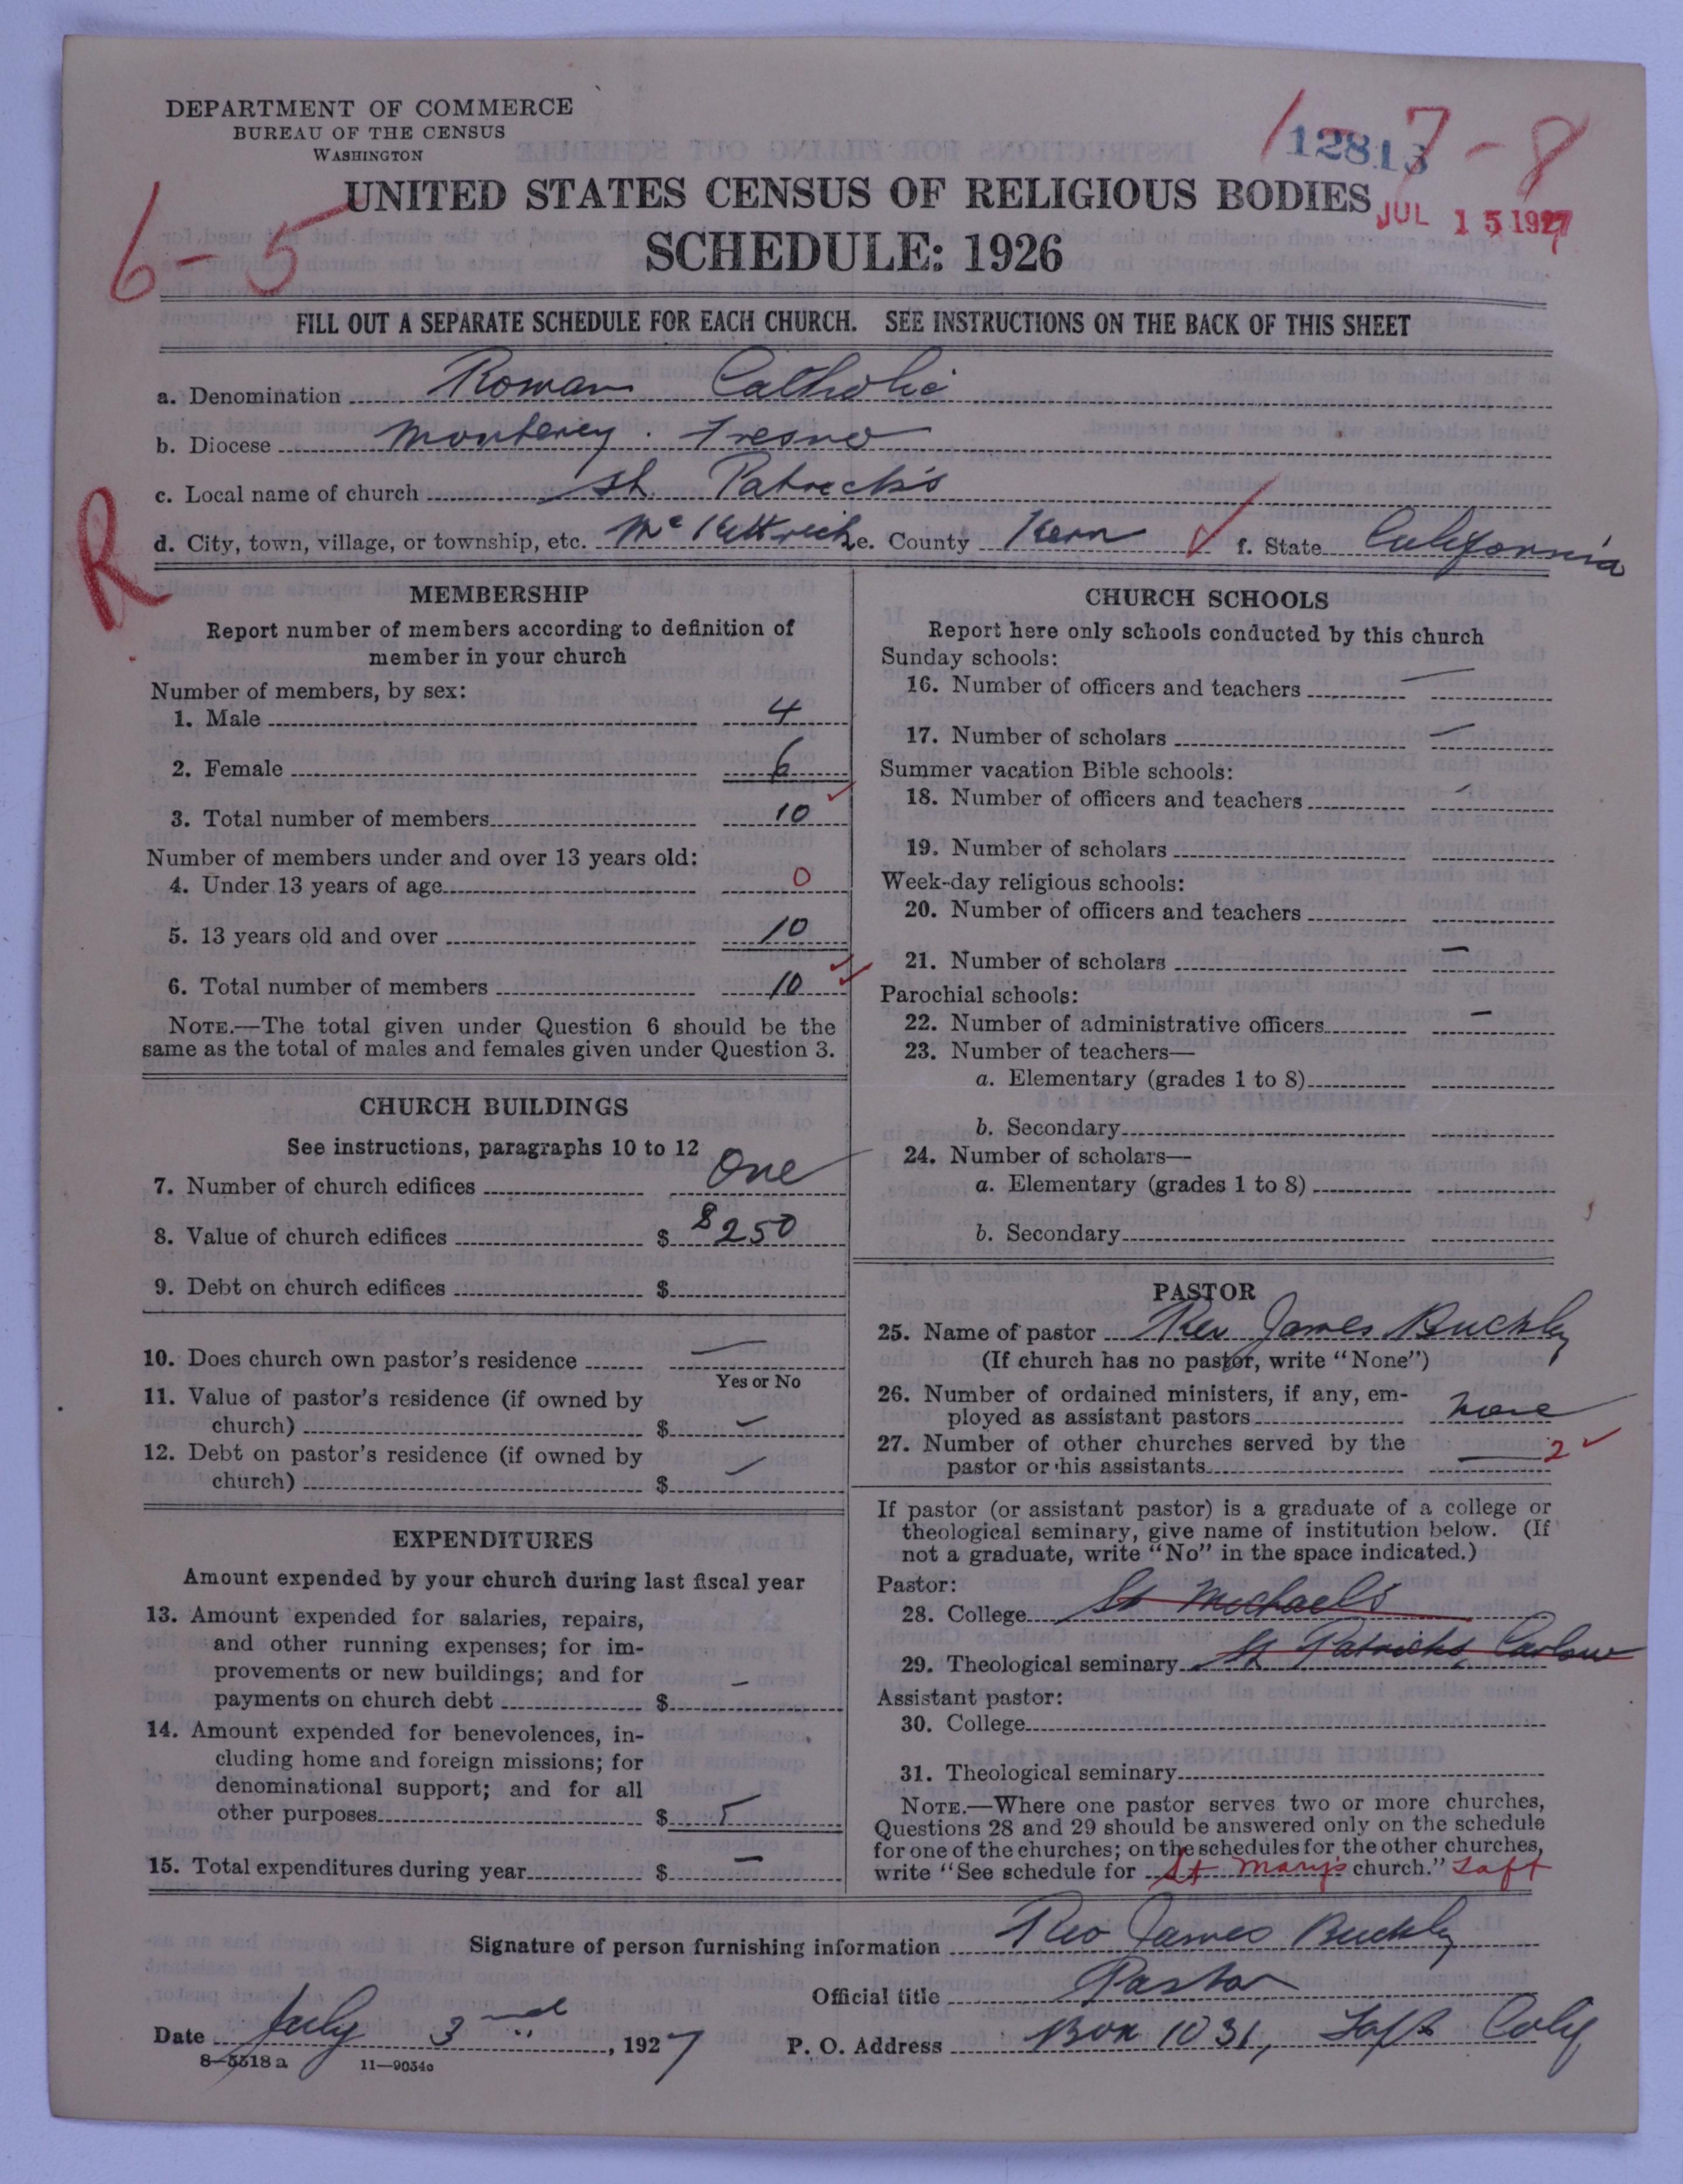 DEPARTMENT OF COMMERCE
BUREAU OF THE CENSUS
WASHINGTON
1 12813 7-8
UNITED STATES CENSUS OF RELIGIOUS BODIES
JUL 15 1927
6-5
SCHEDULE: 1926
FILL OUT A SEPARATE SCHEDULE FOR EACH CHURCH. SEE INSTRUCTIONS ON THE BACK OF THIS SHEET
a. Denomination Roman Catholic
b. Diocese Monterey. Fresno
c. Local name of church St. Patrick's
R
d. City, town, village, or township, etc. McKittrick e. County Kern ✓ f. State California
MEMBERSHIP
Report number of members according to definition of
member in your church
Number of members, by sex:
1. Male 4
2. Female 6
3. Total number of members 10 ✓
Number of members under and over 13 years old:
4. Under 13 years of age 0
5. 13 years old and over 10
6. Total number of members 10 ✓
NOTE.—The total given under Question 6 should be the
same as the total of males and females given under Question 3.
CHURCH BUILDINGS
See instructions, paragraphs 10 to 12
7. Number of church edifices One
8. Value of church edifices $ $250
9. Debt on church edifices $
10. Does church own pastor's residence —
Yes or No
11. Value of pastor's residence (if owned by
church) $ —
12. Debt on pastor's residence (if owned by
church) $ —
EXPENDITURES
Amount expended by your church during last fiscal year
13. Amount expended for salaries, repairs,
and other running expenses; for im-
provements or new buildings; and for
payments on church debt $ —
14. Amount expended for benevolences, in-
cluding home and foreign missions; for
denominational support; and for all
other purposes $
15. Total expenditures during year $ —
CHURCH SCHOOLS
Report here only schools conducted by this church
Sunday schools:
16. Number of officers and teachers —
17. Number of scholars —
Summer vacation Bible schools:
18. Number of officers and teachers —
19. Number of scholars
Week-day religious schools:
20. Number of officers and teachers
21. Number of scholars —
Parochial schools:
22. Number of administrative officers —
23. Number of teachers—
a. Elementary (grades 1 to 8)
b. Secondary
24. Number of scholars—
a. Elementary (grades 1 to 8)
b. Secondary
PASTOR
25. Name of pastor Rev James Buckley
(If church has no pastor, write "None")
26. Number of ordained ministers, if any, em-
ployed as assistant pastors None
27. Number of other churches served by the
pastor or his assistants 2 ✓
If pastor (or assistant pastor) is a graduate of a college or
theological seminary, give name of institution below. (If
not a graduate, write "No" in the space indicated.)
Pastor:
28. College St Michaels
29. Theological seminary St Patricks, Carlow
Assistant pastor:
30. College
31. Theological seminary
NOTE.—Where one pastor serves two or more churches,
Questions 28 and 29 should be answered only on the schedule
for one of the churches; on the schedules for the other churches,
write "See schedule for St Mary's church." Taft
Signature of person furnishing information Rev James Buckley
Official title Pastor
Date July 3nd, 1927 P. O. Address Box 1031, Taft Calif
8-5518 a 11-9034o